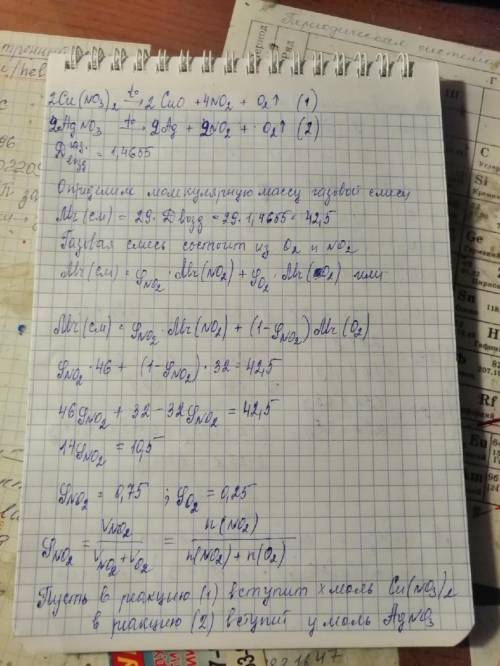 Периодическая система
период
ряд
III
2Cu(NO3)2 t°→ 2CuO + 4NO2 + O2↑ (1)
2AgNO3 t°→ 2Ag + 2NO2 + O2↑ (2)
Dвозд = 1,4655
Определим молекулярную массу газовой смеси
Mr(см) = 29 · Dвозд = 29 · 1,4655 = 42,5
Газовая смесь состоит из O2 и NO2
Mr(см) = φNO2 · Mr(NO2) + φO2 · Mr(O2) или
Mr(см) = φNO2 · Mr(NO2) + (1-φNO2) Mr(O2)
φNO2 · 46 + (1-φNO2) · 32 = 42,5
46φNO2 + 32 - 32φNO2 = 42,5
14φNO2 = 10,5
φNO2 = 0,75 ; φO2 = 0,25
φNO2 = VNO2 / (VNO2 + VO2) = n(NO2) / (n(NO2) + n(O2))
Пусть в реакцию (1) вступит x моль Cu(NO3)2
в реакцию (2) вступит y моль AgNO3
C
Si
Ge
Sn
Rf
Eu